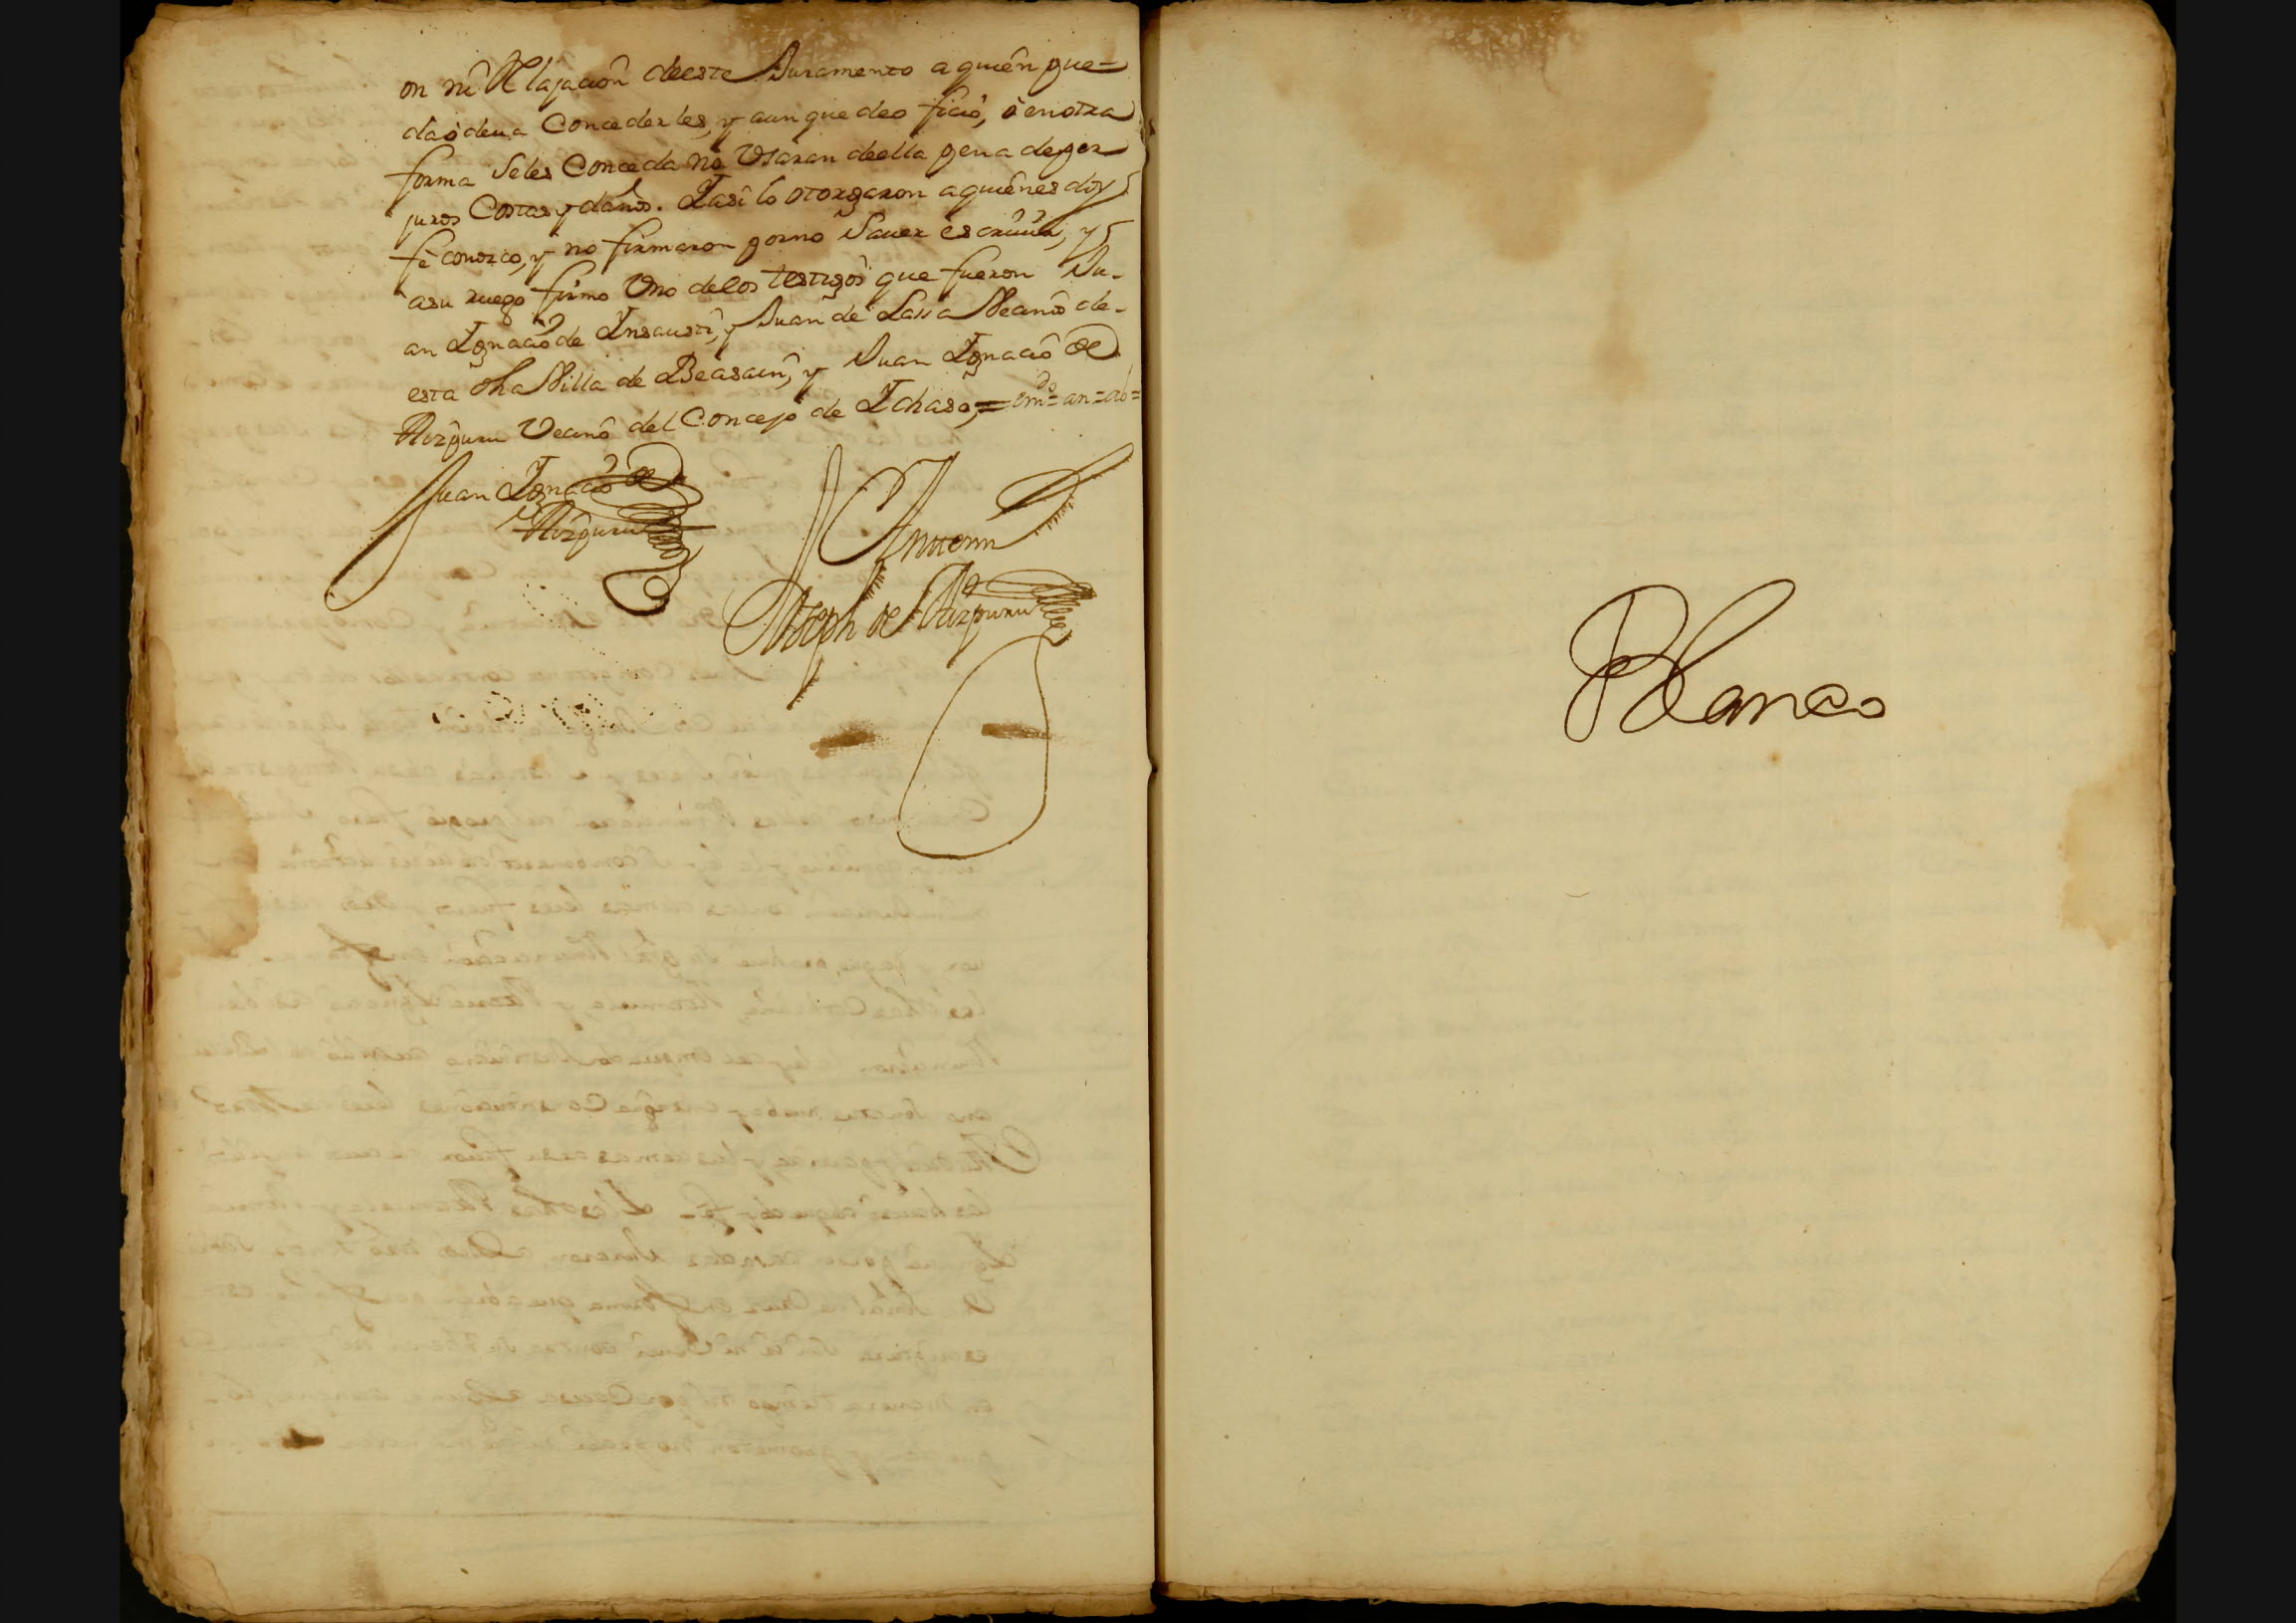 on ni Relajacion deeste Juramento a quien pue-
da o deva Concederles, y aunque de oficio, ò en otra
forma Seles Conceda no Usaran deella pena de per
juros Costas y daños. Y asi lo otorgaron a quienes doy
fè conozco, y no firmaron por no Saver escriuir, y
asu ruego firmo Uno de los testigos que fueron Ju-
an Ignacio de Insausti, y Juan de Lassa Vecinos de-
esta dha Villa de Beasain, y Juan Ignacio de
Aizpuru Vecino del Concejo de Ichaso, = em.do = an = ab =
Juan Ignacio de
Aizpuru
Ante mi
Joseph de Aizpuru
Blanco